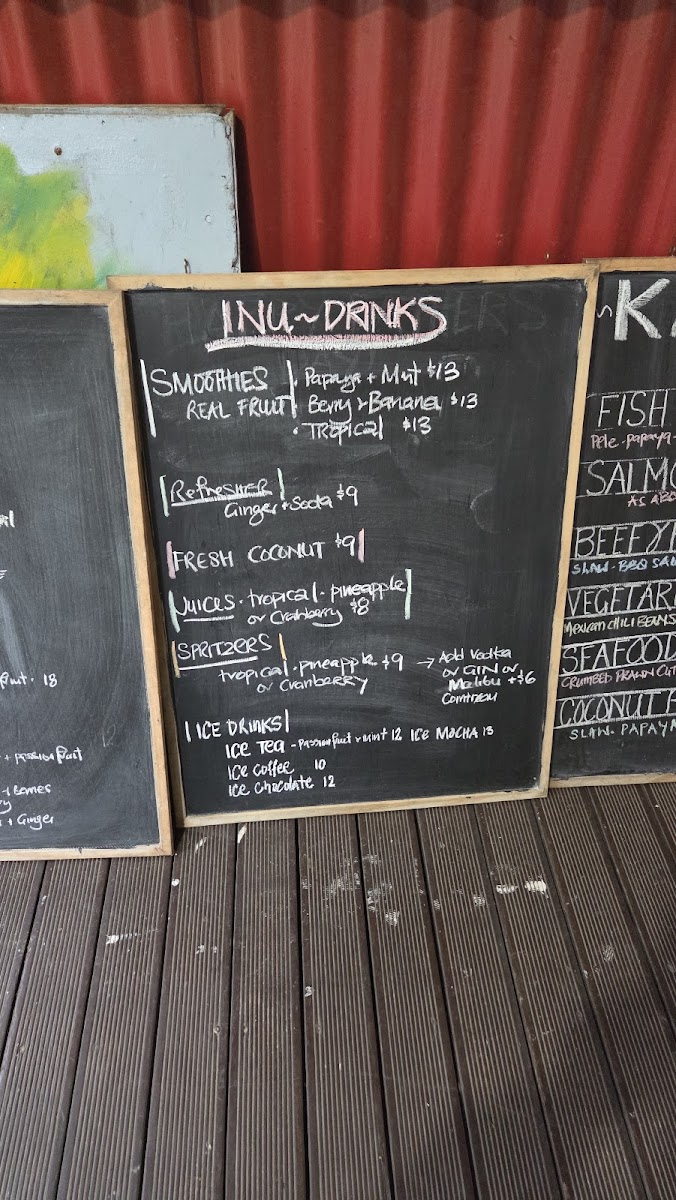 INU~DRINKS
SMOOTHIES
REAL FRUIT
· Papaya + Mint $13
· Berry + Banana $13
· TROPICAL $13
Refresher
Ginger + Soda $9
FRESH COCONUT $9
JUICES · tropical · pineapple
or Cranberry $8
SPRITZERS
tropical · pineapple $9
or CranberrY
→ Add Vodka
or GIN or
Malibu +$6
ICE DRINKS
ICE Tea - passionfruit + mint 12 ICE MOCHA 13
ICE Coffee 10
ICE Chocolate 12
18
+ passionfruit
+ Berries
+ Ginger
~K
FISH
Pele · papaya
SALMO
AS ABO
BEEFY
SLAW · BBQ SAU
VEGETAR
Mexican CHILI BEANS
SEAFOOD
CRUMBED PRAWN CUT
COCONUT
SLAW · PAPAYA